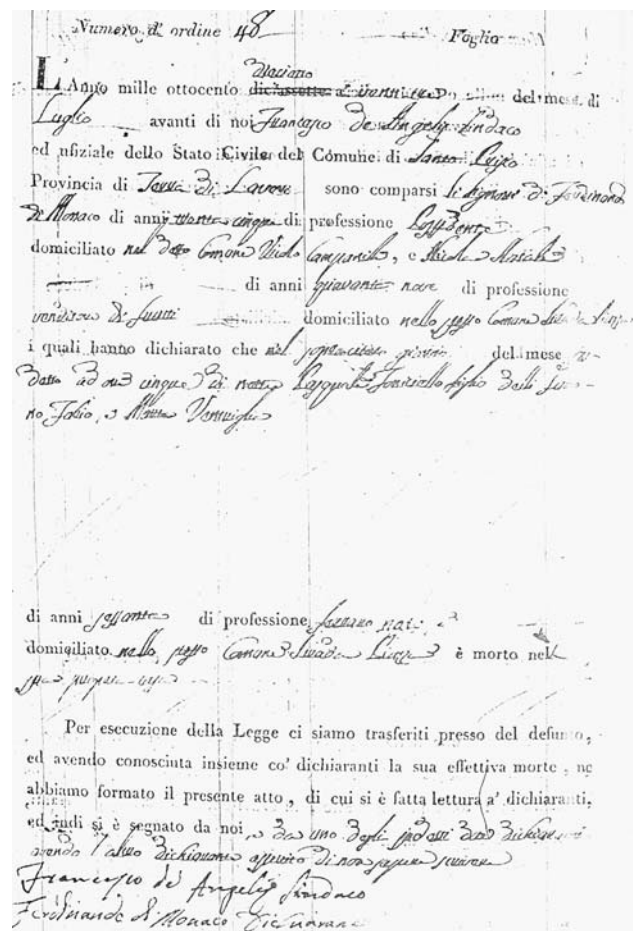 Numero d' ordine 48 Foglio
diaciano
L'Anno mille ottocento diciassette a' del mese di
Luglio avanti di noi Francesco de Angelis Sindaco
ed ufiziale dello Stato Civile del Comune di
Provincia di Terra di Lavoro sono comparsi li Signori D. Ferdinando
di Monaco di anni trenta cinque di professione Possidente
domiciliato nel detto Comune Vicolo Campanile, e Nicola
di anni quaranta nove di professione
venditore di frutti domiciliato nello stesso Comune
i quali hanno dichiarato che nel sopracitato giorno del mese
detto ad ore cinque di notte Pasquale figlio delli
di anni sessanta di professione
domiciliato nello stesso Comune Strada Piazza è morto nella
sua propria casa
Per esecuzione della Legge ci siamo trasferiti presso del defunto,
ed avendo conosciuta insieme co' dichiaranti la sua effettiva morte, ne
abbiamo formato il presente atto, di cui si è fatta lettura a' dichiaranti,
ed indi si è segnato da noi, e da uno degli dichiaranti
avendo l'altro dichiarante asserito di non sapere scrivere
Francesco de' Angelis Sindaco
Ferdinando di Monaco Dichiarante